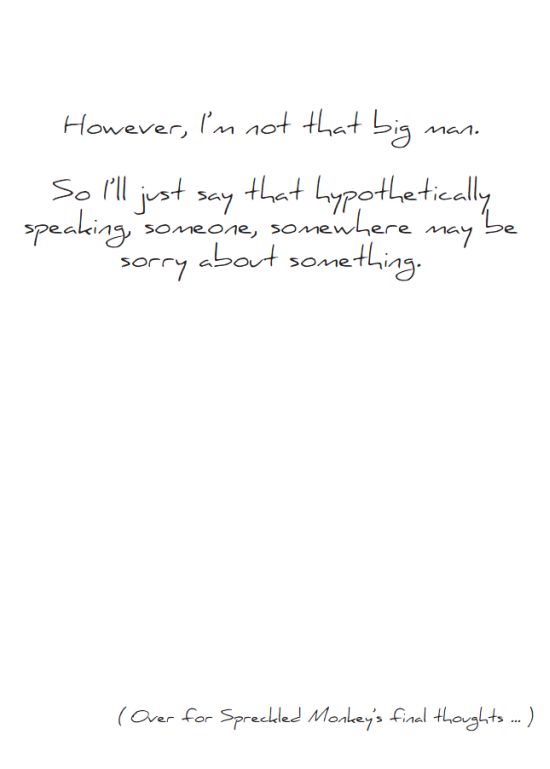 However, I'm not that big man.
So I'll just say that hypothetically
speaking, someone, somewhere may be
sorry about something.
( Over for Spreckled Monkey's final thoughts ... )